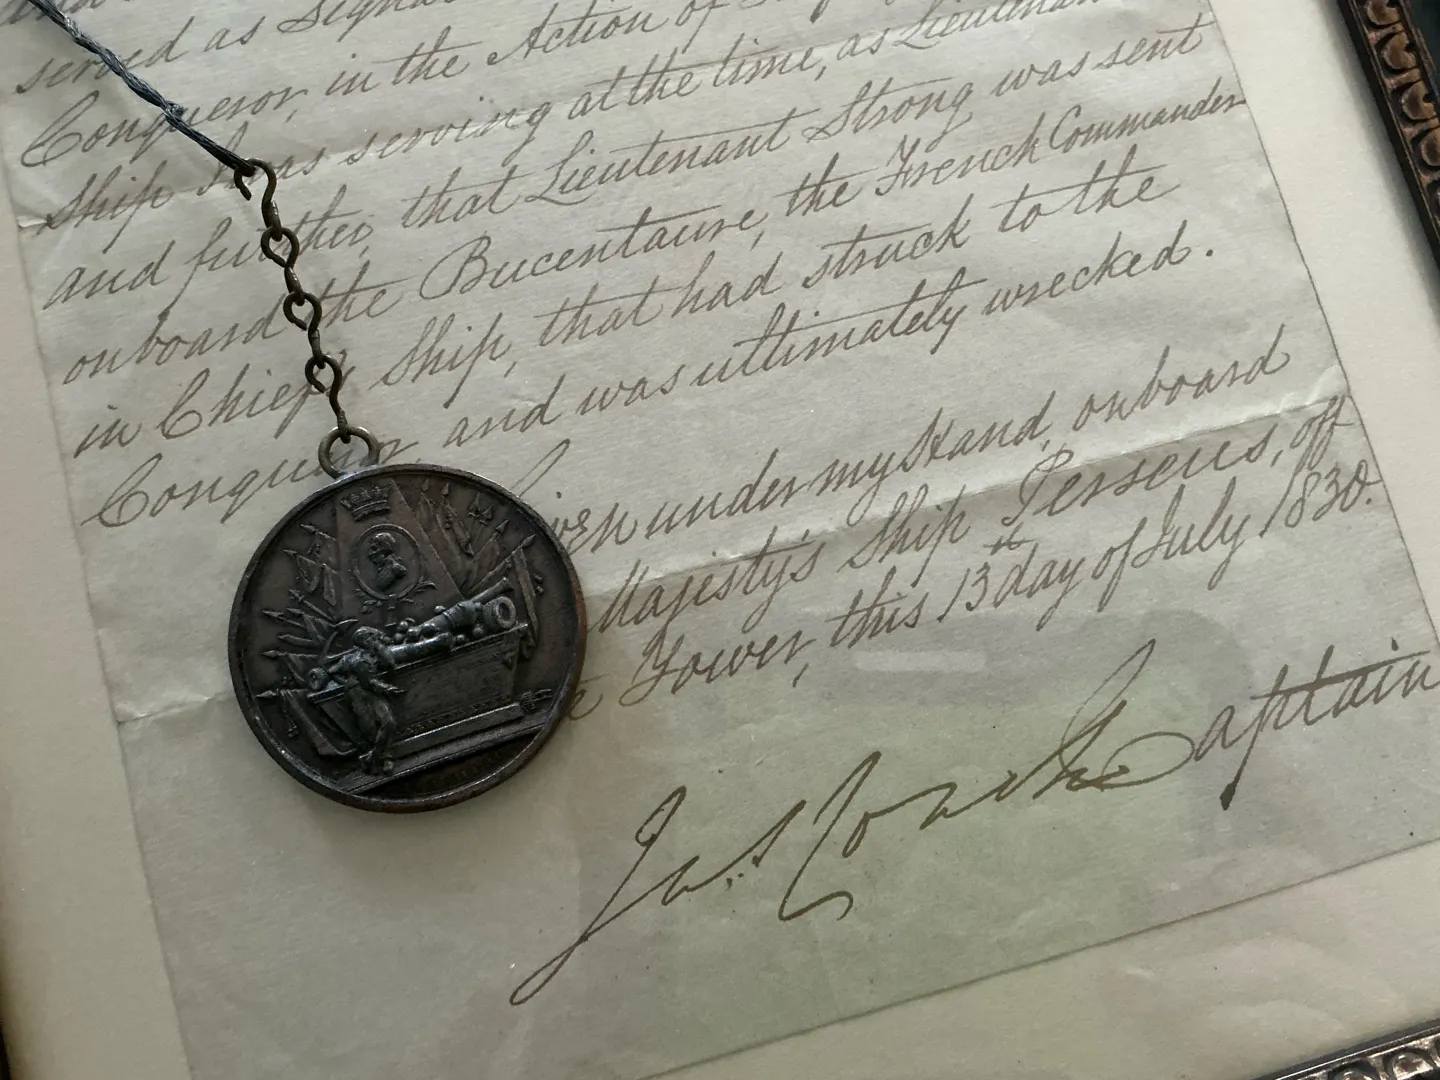 served as Signal
Conqueror, in the Action of
Ship I was serving at the time, as Lieutenant
and further, that Lieutenant Strong was sent
onboard the Bucentaure, the French Commander
in Chief's Ship, that had struck to the
Conqueror, and was ultimately wrecked.
Given under my Hand, onboard
Majesty's Ship Perseus, off
Tower, this 13th day of July 1830.
Jas Couch Captain